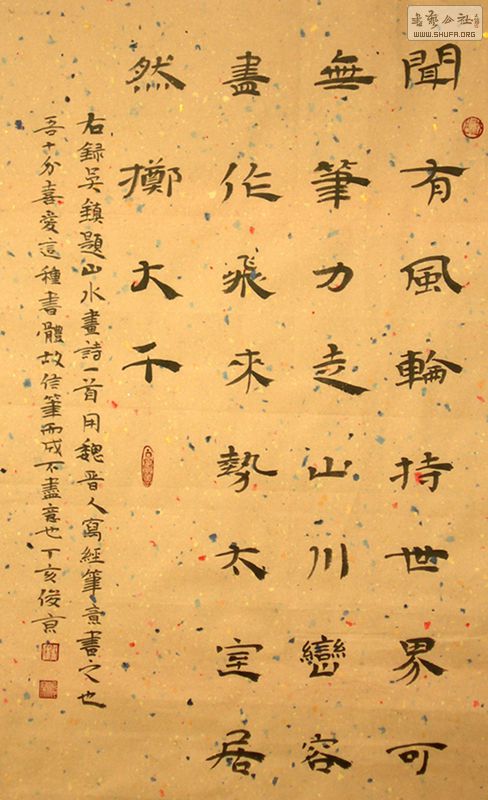 聞有風輪持世界可
無筆力走山川巒容
盡作飛來勢太室居
然擲大千
右録吳鎮題山水畫詩一首用魏晉人寫經筆意書之也
吾十分喜愛這種書體故信筆而成不盡意也丁亥俊京
書藝公社
WWW.SHUFA.ORG